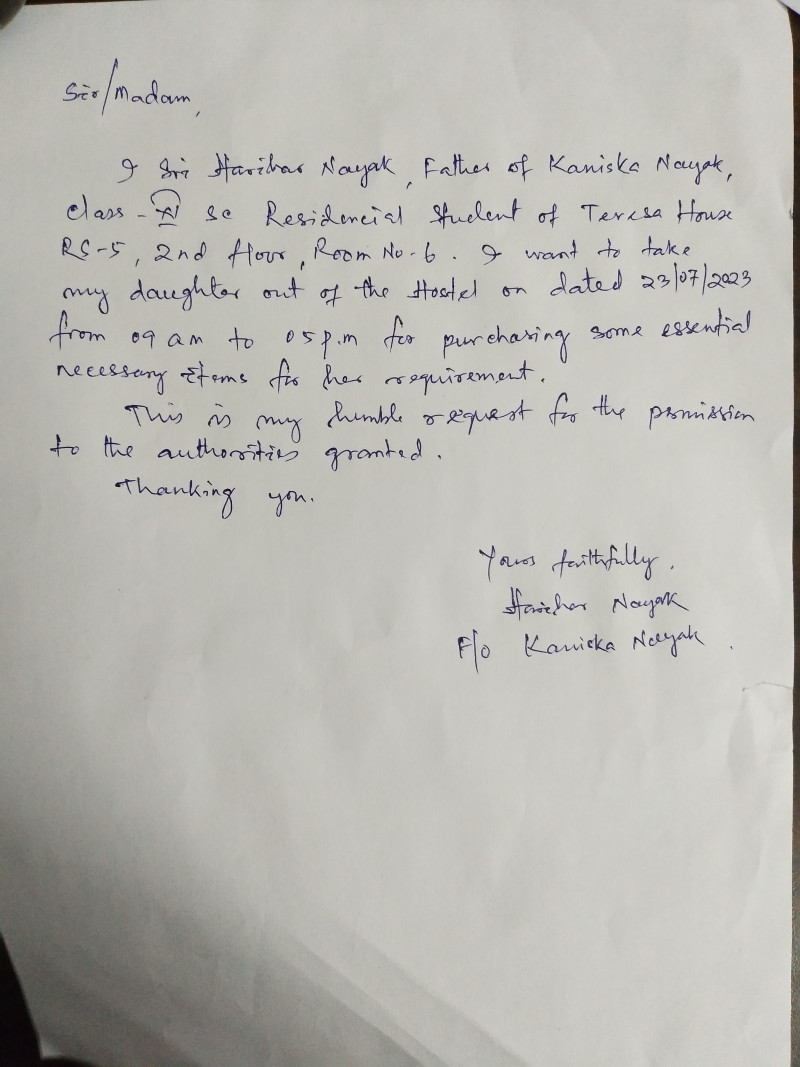 Sir/Madam,
I Sri Harihar Nayak, Father of Kaniska Nayak,
class - XI sc Residencial Student of Teresa House
RS-5, 2nd floor, Room No-6. I want to take
my daughter out of the Hostel on dated 23/07/2023
from 09 am to 05 p.m for purchasing some essential
necessary items for her requirement.
This is my humble request for the permission
to the authorities granted.
Thanking you.
Yours faithfully,
Harihar Nayak
F/o Kaniska Nayak.